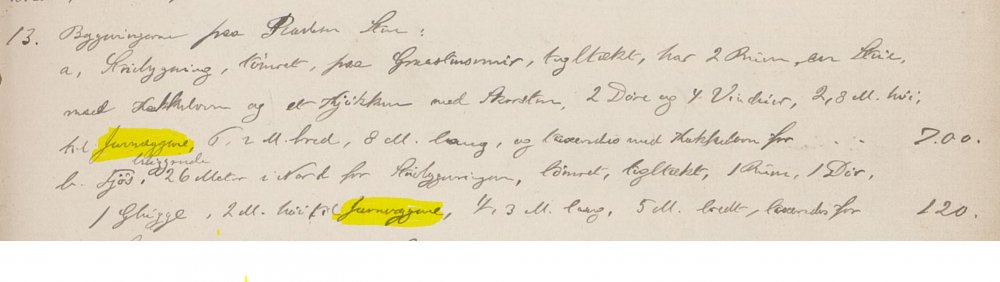 13. Bygningerne paa Pladsen Stue:
a, Stuebygning, tömret, paa Graastensmur, tegltækt, har 2 Rum, en Stue,
med Kakkelovn og et Kjökken med Skorsten, 2 Döre og 4 Vinduer, 2,8 M. höi,
til Jurnvæggene, 6,2 M. bred, 8 M. lang, og taxeredes med Kakkelovn for . . . 700.
b. Fjös, beliggende 26 Meter i Nord for Stuebygningen, tömret, tegltækt, 1 Rum, 1 Dör,
1 Glugge, 2 M. höi til Jurnvæggene, 4,3 M. lang, 5 M. bredt, taxeredes for 120.